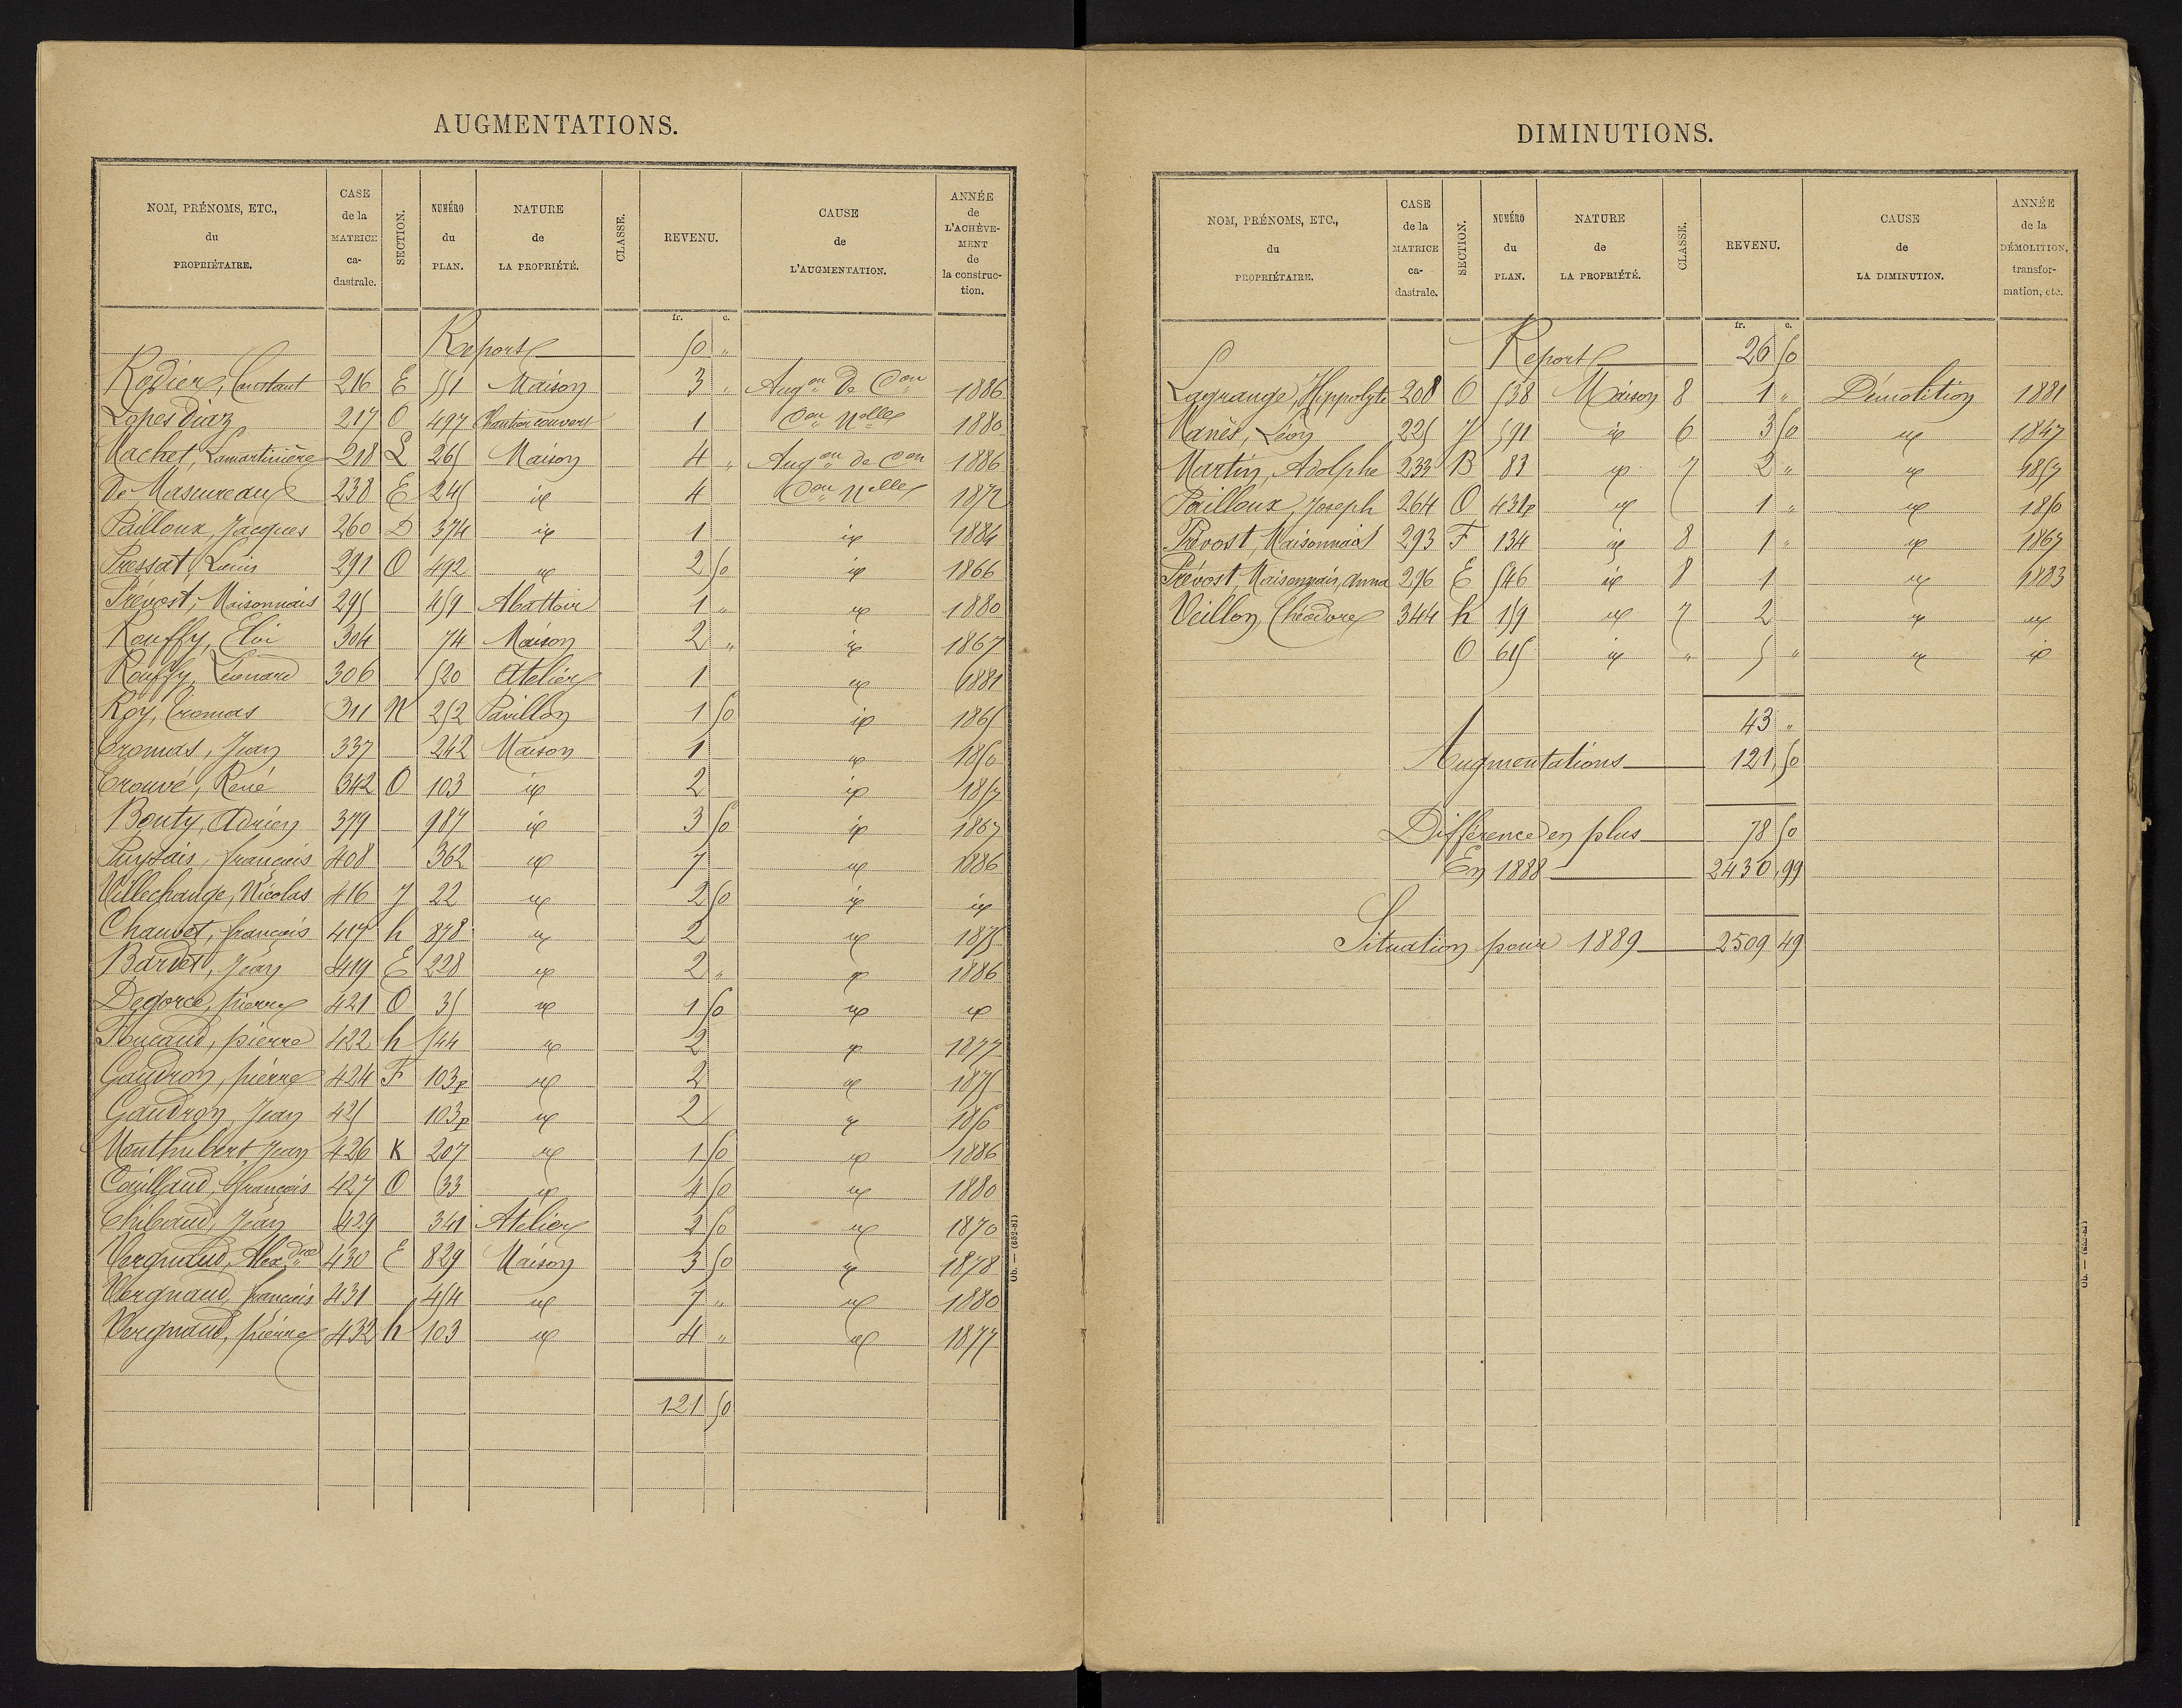 AUGMENTATIONS.
NOM, PRÉNOMS, ETC., du PROPRIÉTAIRE. | CASE de la MATRICE ca-dastrale. | SECTION. | NUMÉRO du PLAN. | NATURE de LA PROPRIÉTÉ. | CLASSE. | REVENU. | CAUSE de L'AUGMENTATION. | ANNÉE de L'ACHÈVE-MENT de la construc-tion.
fr. c.
Report 50 "
Rodier, Constant 216 E 551 Maison 3 " Augon de Con 1886
Lopes Diaz 217 O 497 couvert 1 Con Nelle 1880
Machet, Lamartinière 218 L 265 Maison 4 " Augon de Con 1886
De Mascureau 238 E 245 id 4 Con Nelle 1872
Pailloux, Jacques 260 D 374 id 1 id 1884
Pressat, Louis 291 O 492 id 2 50 id 1866
Prévost, Maisonnais 295 459 Abattoir 1 " id 1880
Rouffy, Eloi 304 74 Maison 2 " id 1867
Rouffy, Léonard 306 520 Atelier 1 id 1881
Roy, Tromas 311 N 252 Pavillon 1 50 id 1865
Tromas, Jean 337 242 Maison 1 id 1850
Trouvé, René 342 O 103 id 2 id 1857
Bouty, Adrien 379 987 id 3 50 id 1867
François 408 362 id 7 id 1886
Villechange, Nicolas 416 J 22 id 2 50 id id
Chauvet, françois 417 h 878 id 2 id 1875
Bardet, Jean 419 E 228 id 2 " id 1886
Degorce, pierre 421 O 35 id 1 50 id id
Foucaud, pierre 422 h 544 id 2 id 1877
Gaudron, pierre 424 F 103p id 2 id 1875
Gaudron, Jean 425 103p id 2 id 1850
Monthubert Jean 426 K 207 id 1 50 id 1886
Couillaud, françois 427 O 533 id 4 50 id 1880
Thibaud, Jean 429 341 Atelier 2 50 id 1870
Vergnaud, Alexdre 430 E 829 Maison 3 50 id 1878
Vergnaud, françois 431 454 id 7 " id 1880
Vergnaud, pierre 432 h 103 id 4 " id 1877
121 50
Ob. — (652-87)
DIMINUTIONS.
NOM, PRÉNOMS, ETC., du PROPRIÉTAIRE. | CASE de la MATRICE ca-dastrale. | SECTION. | NUMÉRO du PLAN. | NATURE de LA PROPRIÉTÉ. | CLASSE. | REVENU. | CAUSE de LA DIMINUTION. | ANNÉE de la DÉMOLITION, transfor-mation, etc.
fr. c.
Report 26 50
Lagrange, Hippolyte 208 O 538 Maison 8 1 " Démolition 1881
Manès, Léon 225 J 591 id 6 3 50 id 1847
Martin, Adolphe 233 B 83 id 7 2 " id 1857
Pailloux, Joseph 264 O 431p id 1 " id 1850
Prévost, Maisonnais 293 F 134 id 8 1 " id 1867
Prévost, Maisonnais, Anna 296 E 546 id 8 1 id 1883
Veillon, Théodore 344 h 159 id 7 2 id id
O 615 id " 5 " id id
43 "
Augmentations 121,50
Différence en plus 78 50
En 1888 2430,99
Situation pour 1889 2509 49
Ob. — (652-87)